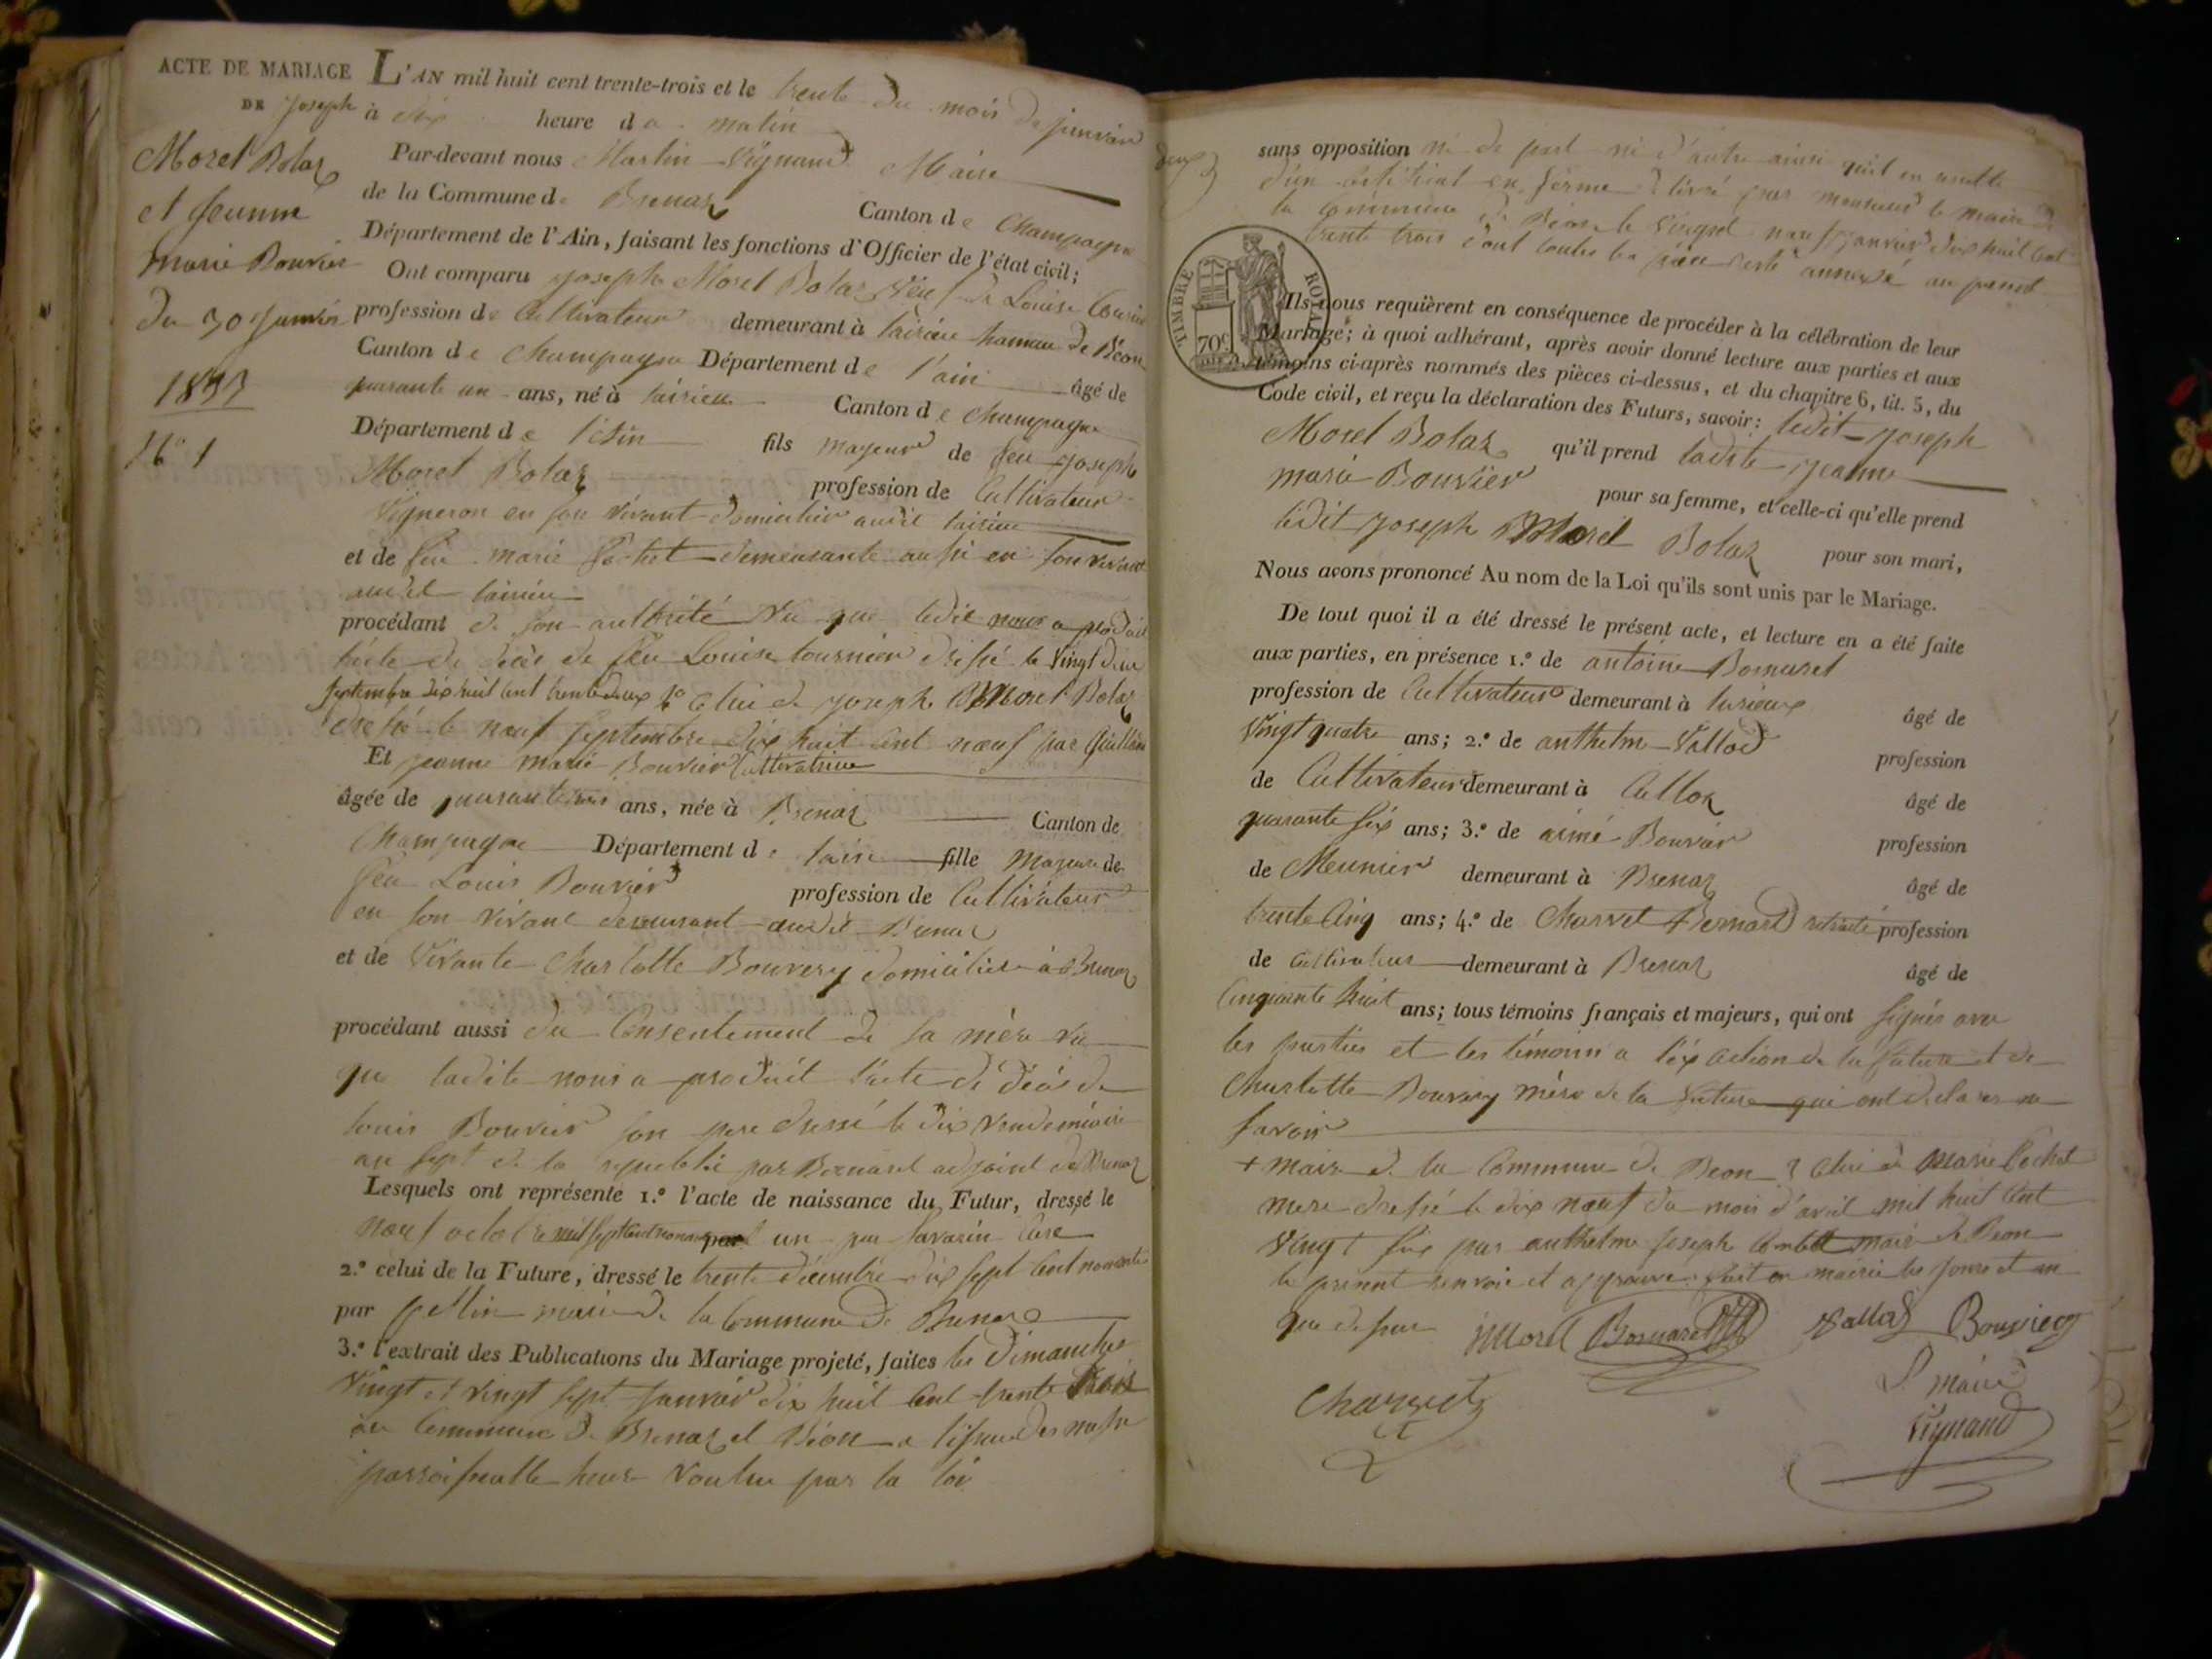 ACTE DE MARIAGE
DE Joseph
Morel Bolaz
et Jeanne
marie Bouvier
du 30 janvier
1833
N° 1
L'AN mil huit cent trente-trois et le trente du mois de janvier
à dix heure du matin
Par-devant nous Martin Vignand Maire
de la Commune de Brenaz Canton de Champagne
Département de l'Ain, faisant les fonctions d'Officier de l'état civil;
Ont comparu joseph Morel Bolaz Veuf de Louise
profession de Cultivateur demeurant à hameau de Béon
Canton de Champagne Département de l'ain âgé de
quarante un ans, né à Canton de Champagne
Département de l'Ain fils majeur de feu joseph
Morel Bolaz profession de Cultivateur
Vigneron en son vivant domicilié audit
et de feu marie demeurante aussi en son vivant
audit
procédant de son authorité Vu que ledit nous a produit
l'acte de décès de feu Louise tournier dressé le vingt deux
septembre dix huit cent trente deux 2° celui de joseph Morel Bolaz
dressé le neuf septembre dix huit cent neuf par
Et jeanne marie Bouvier Cultivatrice
âgée de ans, née à Brenaz Canton de
Champagne Département de lain fille majeure de
feu Louis Bouvier profession de Cultivateur
en son vivant demeurant audit Brenaz
et de Vivante Charlotte Bouvery domiciliée à Brenaz
procédant aussi du Consentement de sa mère vu
que ladite nous a produit l'acte de décès de
Louis Bouvier son pere dressé le dix vendemiaire
an sept de la republilc par Bernard adjoint de Brenaz
Lesquels ont représenté 1.° l'acte de naissance du Futur, dressé le
neuf octobre mil sept cent nonante un par Savarin Curé
2.° celui de la Future, dressé le trente décembre dix sept cent nonante
par maire de la Commune de Brenaz
3.° l'extrait des Publications du Mariage projeté, faites les Dimanches
Vingt et vingt sept janvier dix huit cent trente trois
Commune de Brenaz et Béon a l'issue des messe
heure Voulue par la loi
sans opposition ni de part ni d'autre ainsi qu'il en resulte
d'un Certificat en forme délivré par monsieur le maire de
la Commune de Béon le vingt neuf janvier dix huit cent
trente trois dont toutes les annexé au present
TIMBRE ROYAL
70c
Ils nous requièrent en conséquence de procéder à la célébration de leur
Mariage; à quoi adhérant, après avoir donné lecture aux parties et aux
témoins ci-après nommés des pièces ci-dessus, et du chapitre 6, tit. 5, du
Code civil, et reçu la déclaration des Futurs, savoir: ledit joseph
Morel Bolaz qu'il prend ladite jeanne
marie Bouvier pour sa femme, et celle-ci qu'elle prend
ledit joseph Morel Bolaz pour son mari,
Nous avons prononcé Au nom de la Loi qu'ils sont unis par le Mariage.
De tout quoi il a été dressé le présent acte, et lecture en a été faite
aux parties, en présence 1.° de antoine Bornarel
profession de Cultivateur demeurant à âgé de
Vingt quatre ans; 2.° de anthelm Vallod profession
de Cultivateur demeurant à Culloz âgé de
quarante six ans; 3.° de aimé Bouvier profession
de Meunier demeurant à Brenaz âgé de
trente cinq ans; 4.° de Charvet Bernard retraité profession
de Cultivateur demeurant à Brenaz âgé de
Cinquante huit ans; tous témoins français et majeurs, qui ont signés avec
les parties et les témoins a l'exception de la future et de
Charlotte Bouvery mère de la future qui ont déclarer ne
savoir
+ maire de la Commune de Beon 3 celui de Marie Cochet
mere dressé le dix neuf du mois d'avril mil huit cent
vingt six par anthelme joseph maire de Beon
le present renvoie et approuvé fait en mairie les jours et an
que dessus Morel Bornarel Vallod Bouvier
Charvet
Le maire
Vignand